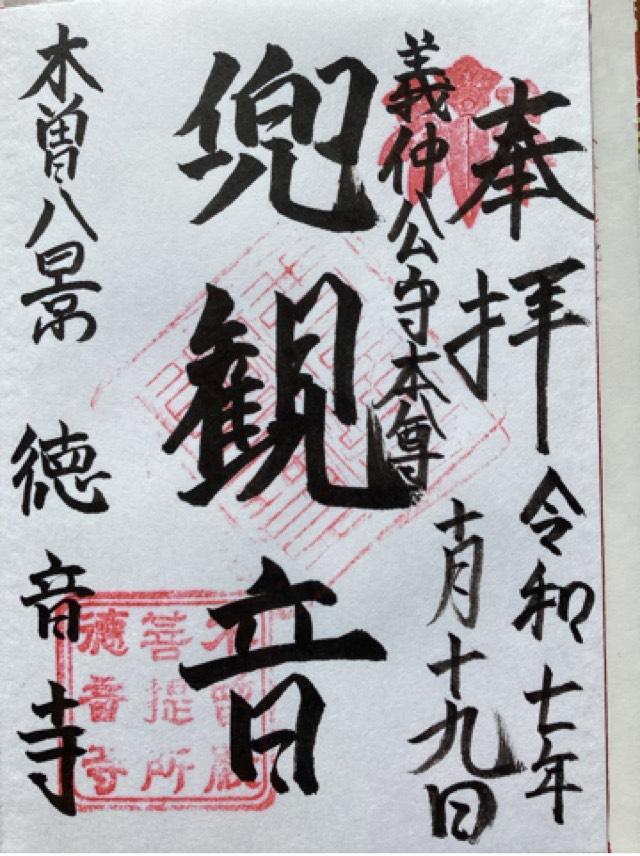 奉拝
令和七年
十月十九日
義仲公守本尊
兜観音
木曽八景 徳音寺
菩提所
徳音寺